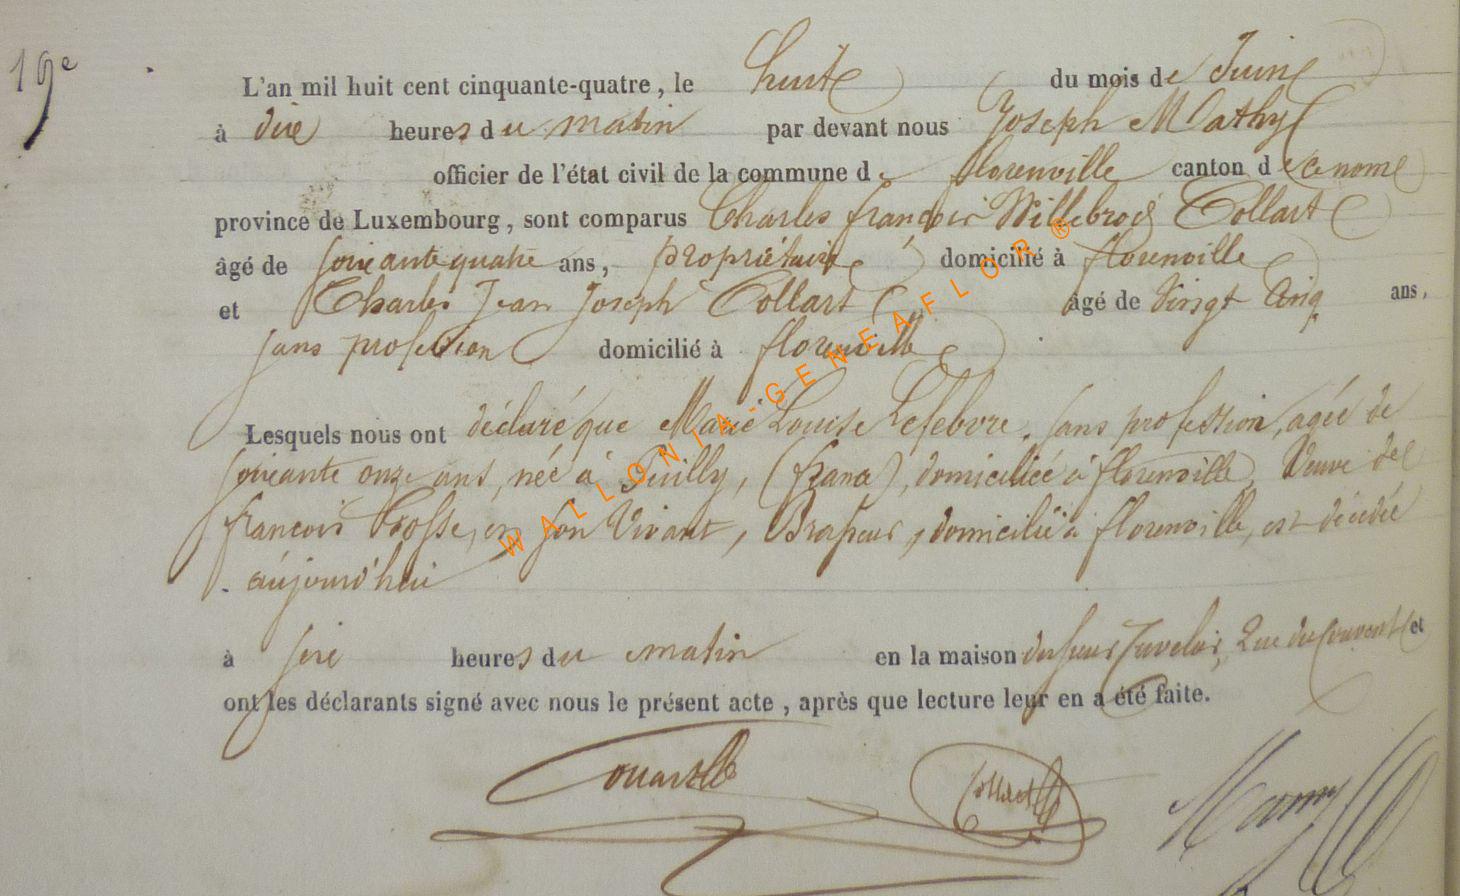 19e
L'an mil huit cent cinquante-quatre, le huit du mois de Juin
à dix heures du matin par devant nous Joseph Mathy
officier de l'état civil de la commune de florenville canton de ce nom
province de Luxembourg, sont comparus Charles françois Willebrod Collart
âgé de soixante quatre ans, propriétaire domicilié à florenville
et Charles Jean Joseph Collart âgé de Vingt Cinq ans,
sans profession domicilié à florenville
Lesquels nous ont déclaré que Marie Louise Lefebvre, sans profession, agée de
soixante onze ans, née à Puilly, (france), domiciliée à florenville, Veuve de
françois Crosse, en son Vivant, Brasseur, domicilié à florenville, est décédée
aujourd'hui
à six heures du matin en la maison du sieur Juvelois, Rue du Couvent et
ont les déclarants signé avec nous le présent acte, après que lecture leur en a été faite.
Collart
WALLONIA-GENEAFLOR ®